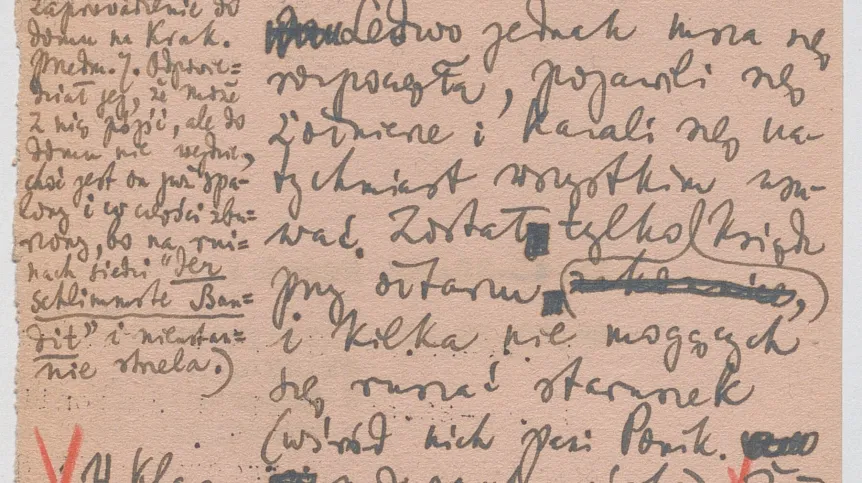 zaprowadzenie do
domu na Krak.
Przedm. 7. Odpowie=
dział jej, że może
z nią pójść, ale do
domu nie wejdzie,
choć jest on już spa=
lony i w całości zbu=
rzony, bo na rui=
nach siedzi "der
schlimmste Ban=
dit" i nieustan=
nie strzela.)
Ledwo jednak msza się
rozpoczęła, pojawili się
żołnierze i kazali się na-
tychmiast wszystkim usu-
wać. Został tylko ksiądz
przy ołtarzu
i kilka nie mogących
się ruszać staruszek
(wśród nich pani Ponik.